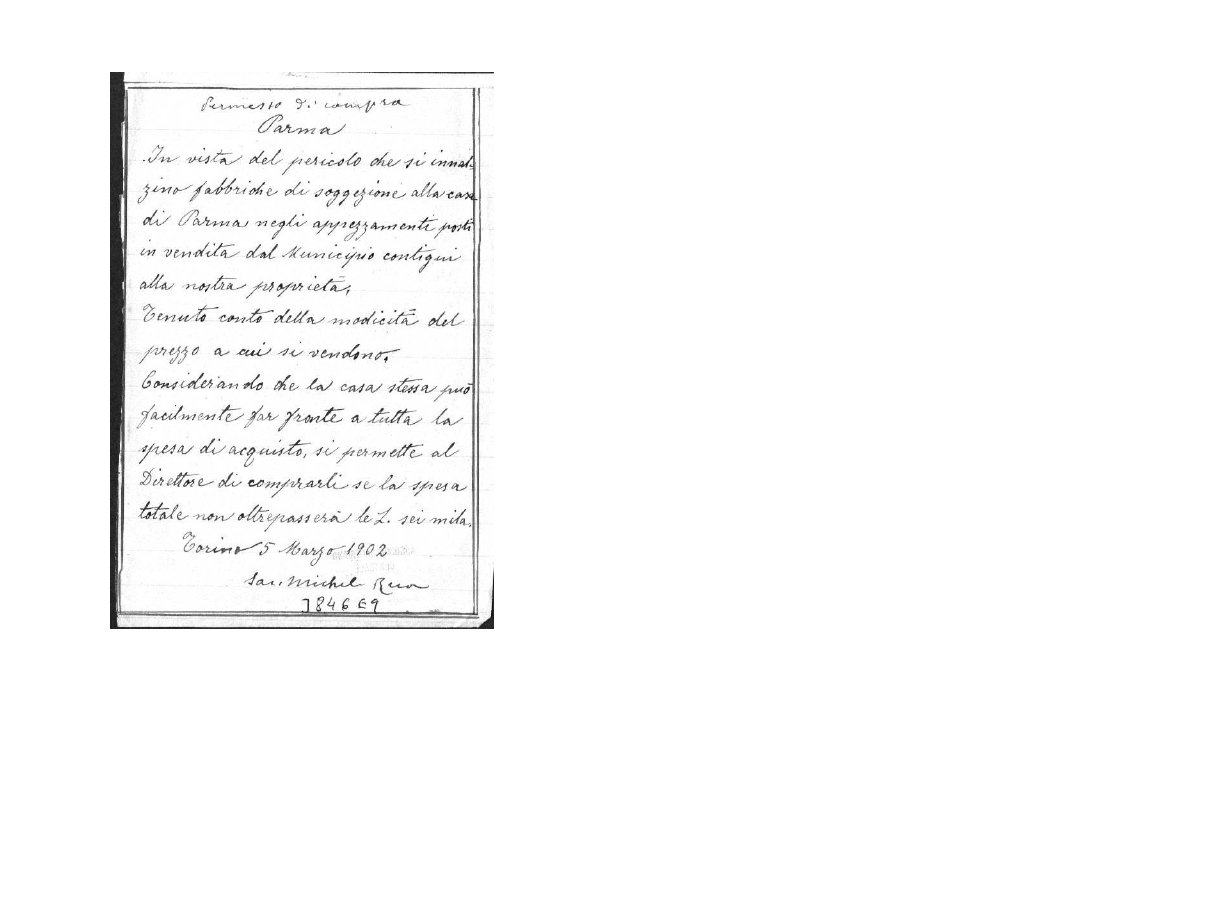 Permesso di compra
Parma
In vista del pericolo che si innal-
zino fabbriche di soggezione alla casa
di Parma negli appezzamenti posti
in vendita dal Municipio contigui
alla nostra proprietà,
Tenuto conto della modicità del
prezzo a cui si vendono,
Considerando che la casa stessa può
facilmente far fronte a tutta la
spesa di acquisto, si permette al
Direttore di comprarli se la spesa
totale non oltrepasserà le L. sei mila.
Torino 5 Marzo 1902
Sac. Michel Rua